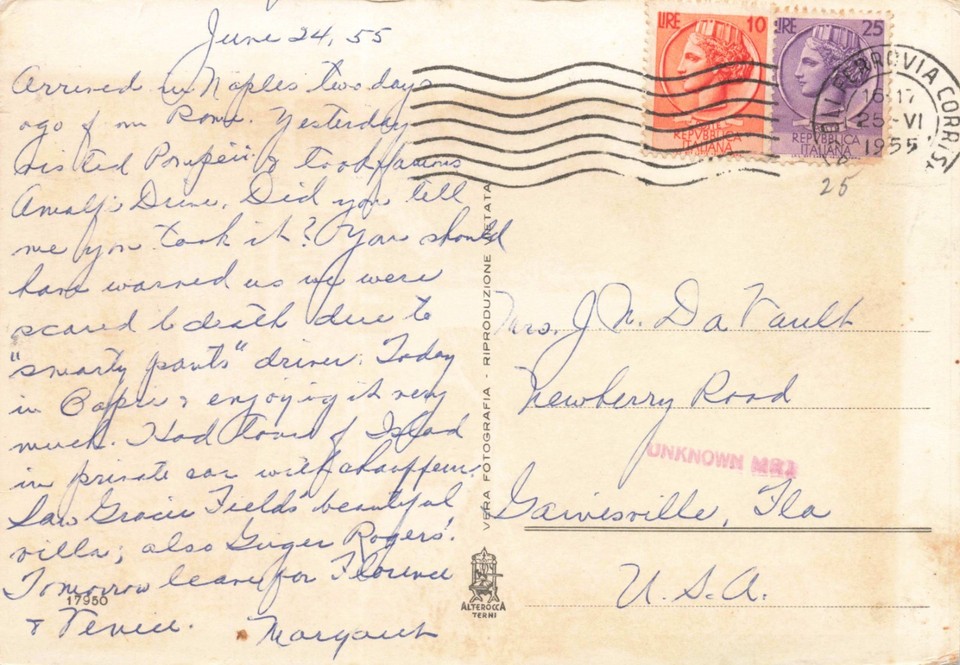 June 24, 55
Arrived in Naples two days
ago from Rome. Yesterday
visited Pompeii & took famous
Amalfi Drive. Did you tell
me you took it? You should
have warned us we were
scared to death due to
"smarty pants" driver. Today
in Capri & enjoying it very
much. Had tour of Island
in private car with chauffeur.
Saw Gracie Fields' beautiful
villa; also Ginger Rogers'.
Tomorrow leave for Florence
& Venice. Margaret
17950
VERA FOTOGRAFIA - RIPRODUZIONE VIETATA
ALTEROCCA
TERNI
LIRE 10
REPVBBLICA
ITALIANA
LIRE 25
REPVBBLICA
ITALIANA
FERROVIA CORRIS
16-17
25-VI
1955
25
Mrs. J. N. DaVault
Newberry Road
UNKNOWN
Gainesville, Fla
U.S.A.